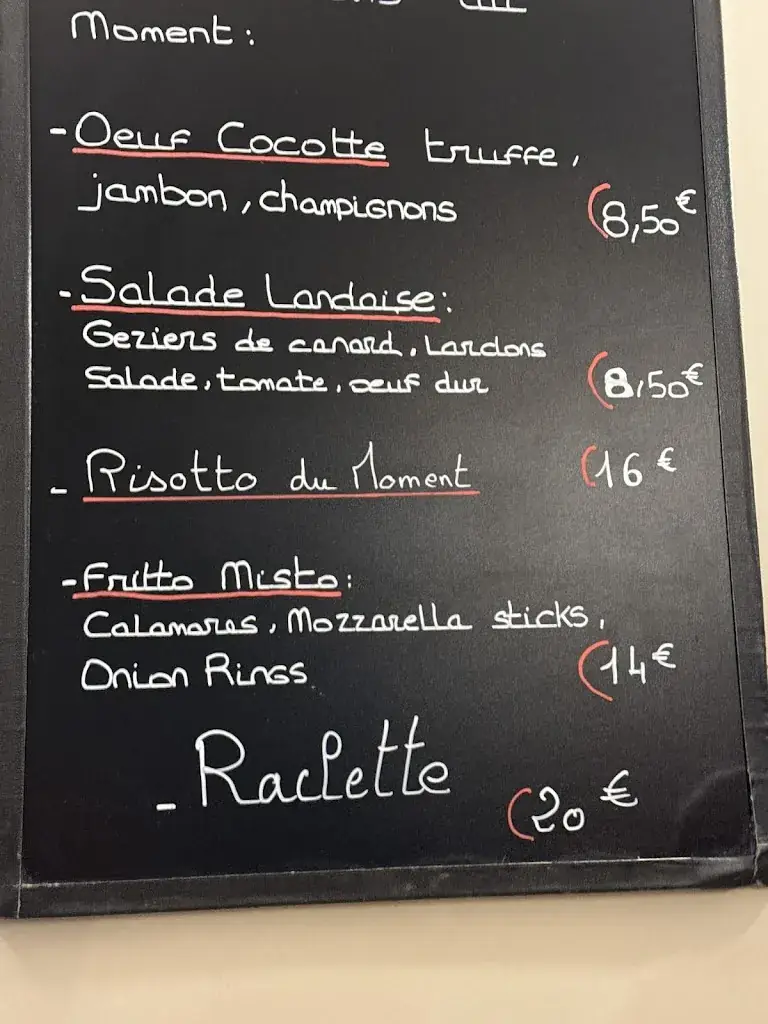 Moment :
- Oeuf Cocotte truffe,
jambon, champignons (8,50€
- Salade Landaise :
Geziers de canard, Lardons
Salade, tomate, oeuf dur (8,50€
- Risotto du Moment (16€
- Fritto Misto :
Calamares, Mozzarella sticks,
Onion Rings (14€
- Raclette (20€